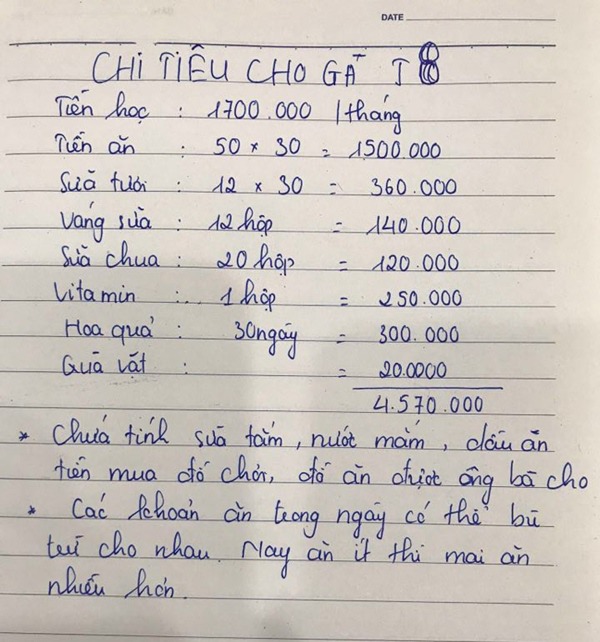 DATE
CHI TIÊU CHO GÀ T8
Tiền học : 1700.000 /tháng
Tiền ăn : 50 x 30 = 1500.000
Sữa tươi : 12 x 30 = 360.000
Váng sữa : 12 hộp = 140.000
Sữa chua : 20 hộp = 120.000
Vitamin : 1 hộp = 250.000
Hoa quả : 30 ngày = 300.000
Quà vặt : = 20.0000
4.570.000
* Chưa tính sữa tắm, nước mắm, dầu ăn
tiền mua đồ chơi, đồ ăn được ông bà cho
* Các khoản ăn trong ngày có thể bù
trừ cho nhau. Nay ăn ít thì mai ăn
nhiều hơn.